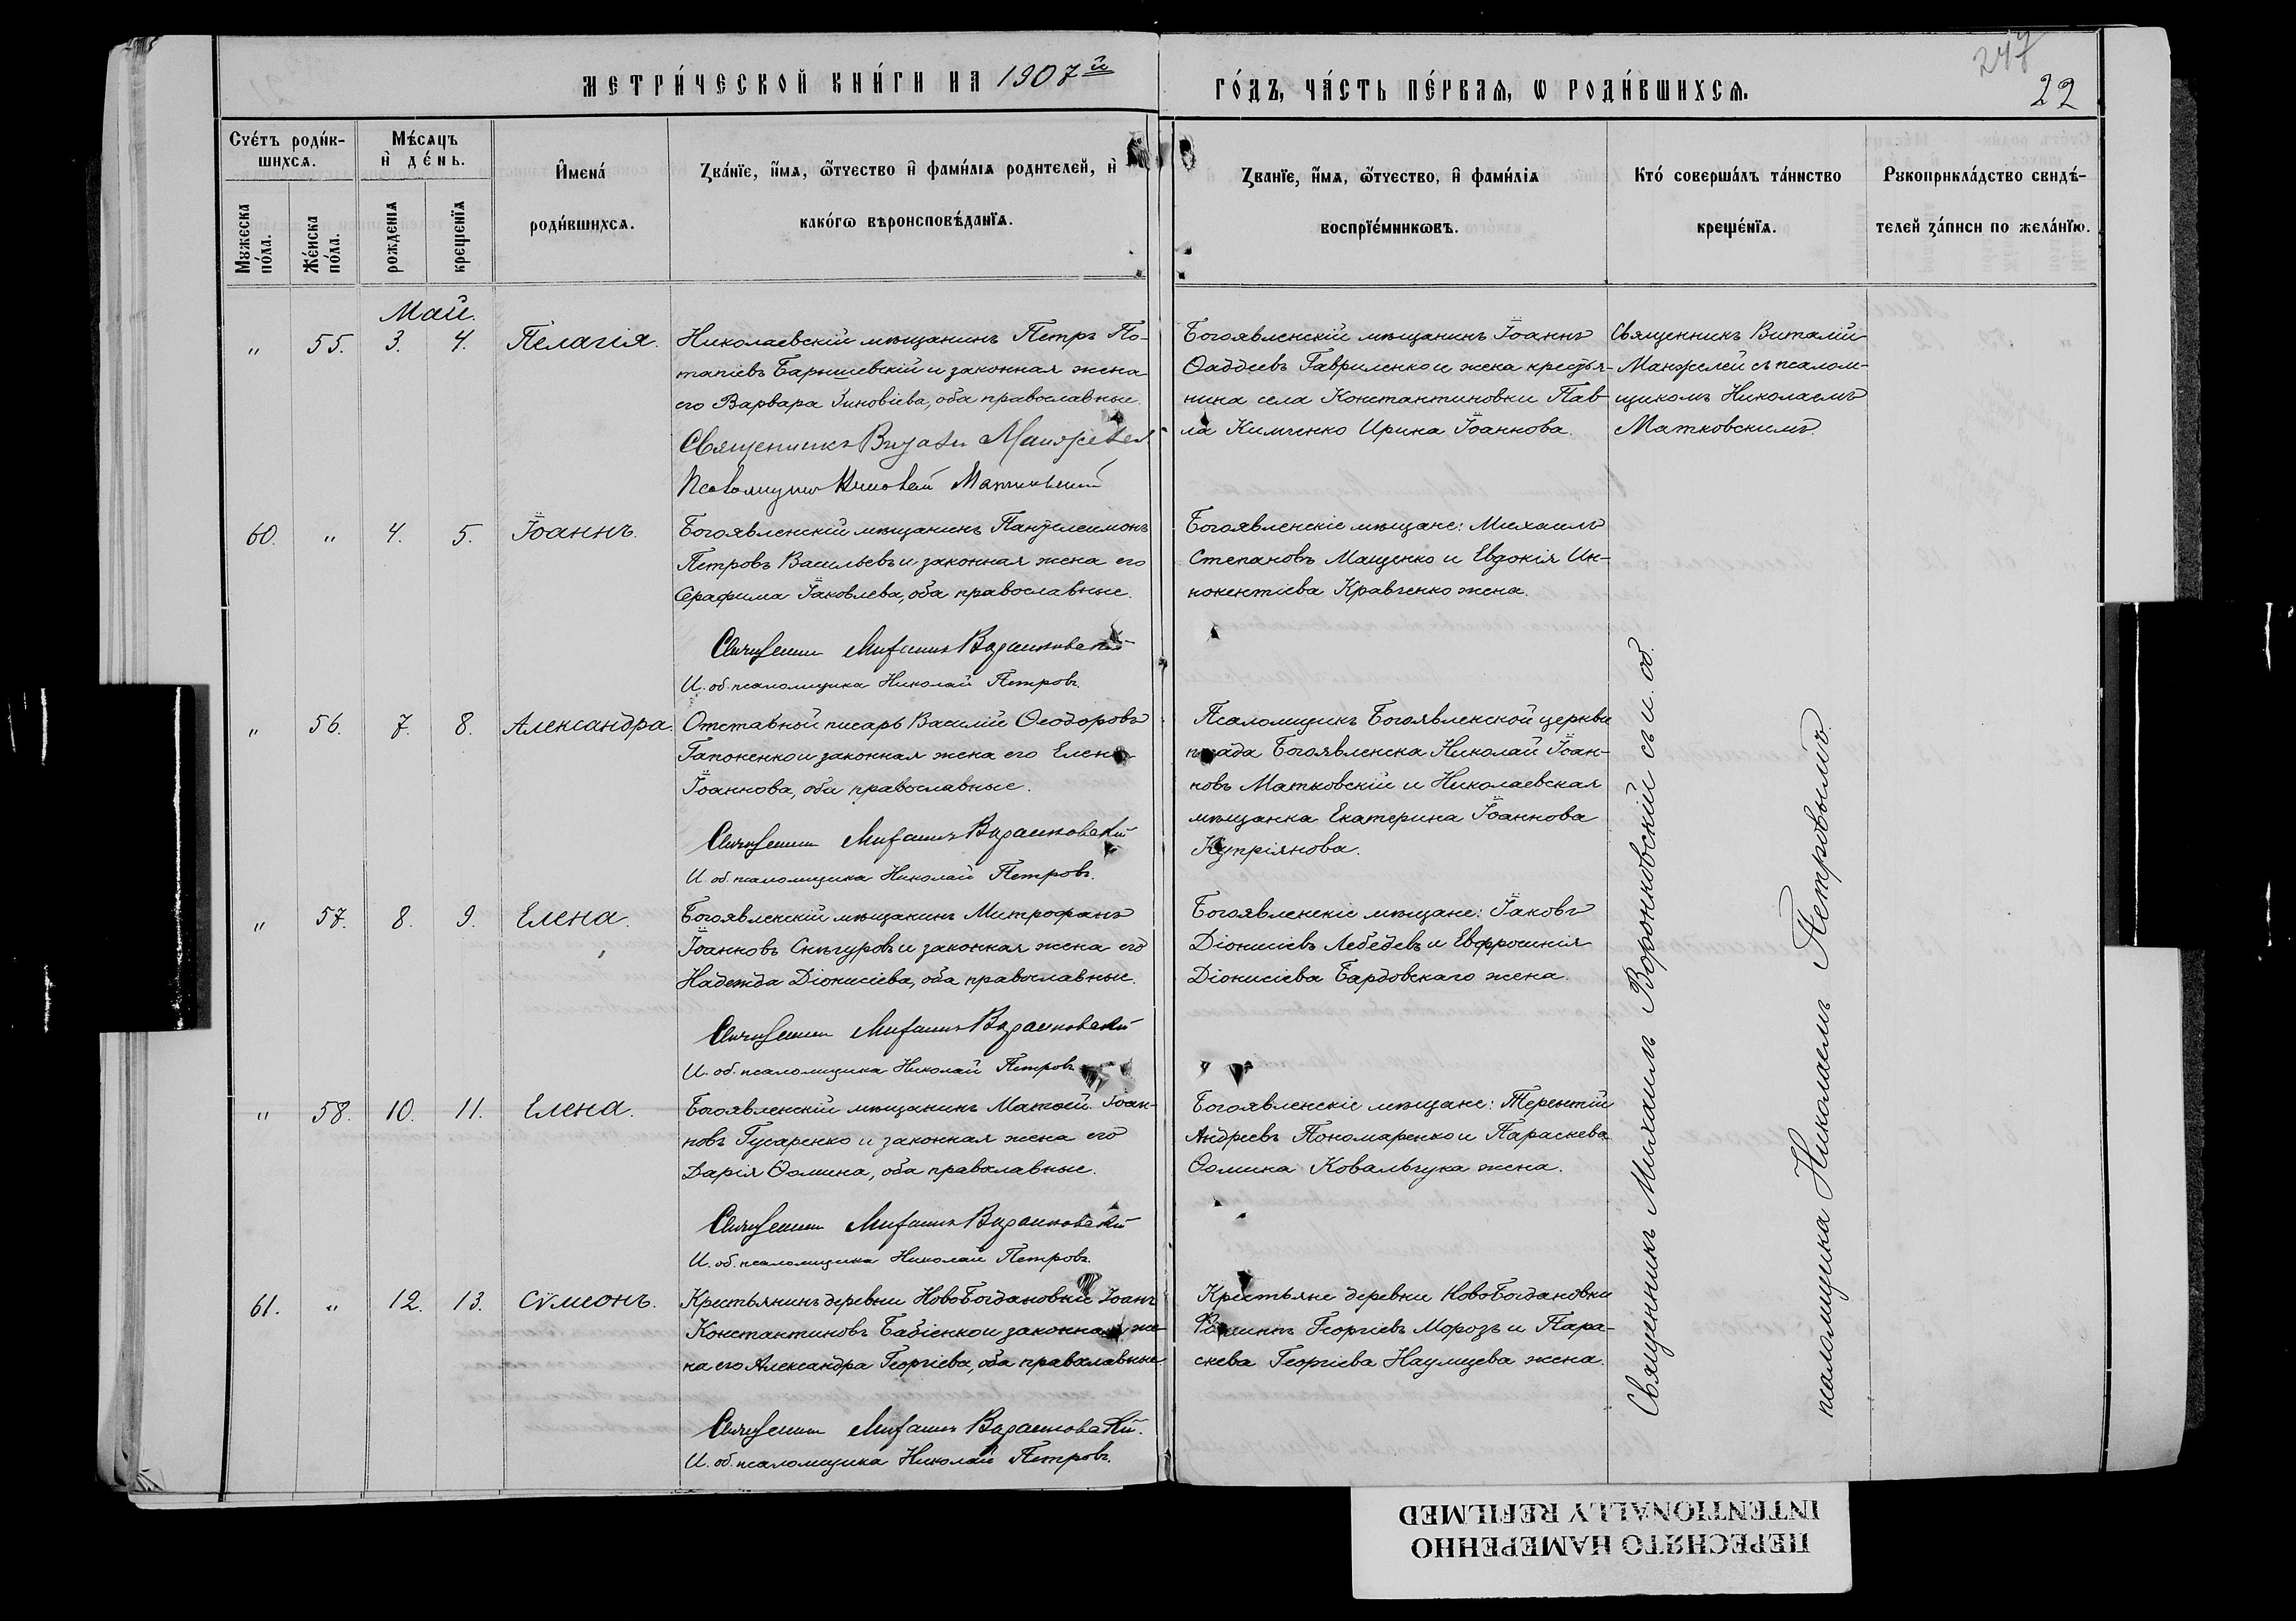 МЕТРИ́ЧЕСКОЙ КНИ́ГИ НА 1907й
ГО́ДЪ, ЧА́СТЬ ПЕ́РВАѦ, Ѡ РОДИ́ВШИХСѦ.
247
22
Сче́тъ роди́в-
шихсѧ.
Мѣ́сяцъ
и҆ де́нь.
И҆мена́
роди́вшихсѧ.
Зва́нїе, и҆́мѧ, ѻ҆́тчество и҆ фами́лїѧ родителей, и҆
како́гѡ вѣроисповѣ́данїѧ.
Зва́нїе, и҆́мѧ, ѻ҆́тчество, и҆ фами́лїѧ
воспрїе́мникѡвъ.
Кто́ соверша́лъ та́инство
креще́нїѧ.
Рꙋкоприкла́дство свидѣ́-
телей за́писи по жела́нїю.
Мꙋжеска
по́ла.
Же́нска
по́ла.
рожденїѧ
крещенїѧ
Май.
" 55. 3. 4. Пелагія.
Николаевскій мѣщанинъ Петръ По-
тапіевъ Барышевскій и законная жена
его Варвара Зиновіева, оба православные.
Священникъ Виталій Манжелей
Псаломщикъ Николай Матковскій
Богоявленскій мѣщанинъ Іоаннъ
Ѳаддеевъ Гавриленко и жена крестья-
нина села Константиновки Пав-
ла Кимченко Ирина Іоаннова.
Священникъ Виталій
Манжелей съ псалом-
щикомъ Николаемъ
Матковскимъ.
60. " 4. 5. Іоаннъ.
Богоявленскій мѣщанинъ Пантелеимонъ
Петровъ Васильевъ и законная жена его
Серафима Іаковлева, оба православные.
Священникъ Михаилъ Воронковскій
И. об. псаломщика Николай Петровъ.
Богоявленскіе мѣщане: Михаилъ
Степановъ Мащенко и Евдокія Ин-
нокентіева Кравченко жена.
" 56. 7. 8. Александра.
Отставной писарь Василій Ѳеодоровъ
Гапоненко и законная жена его Елена
Іоаннова, оба православные.
Священникъ Михаилъ Воронковскій
И. об. псаломщика Николай Петровъ.
Псаломщикъ Богоявленской церкви
посада Богоявленска Николай Іоан-
новъ Матковскій и Николаевская
мѣщанка Екатерина Іоаннова
Купріянова.
" 57. 8. 9. Елена.
Богоявленскій мѣщанинъ Митрофанъ
Іоанновъ Снѣгуровъ и законная жена его
Надежда Діонисіева, оба православные.
Священникъ Михаилъ Воронковскій
И. об. псаломщика Николай Петровъ
Богоявленскіе мѣщане: Іаковъ
Діонисіевъ Лебедевъ и Евфросинія
Діонисіева Бардовскаго жена.
" 58. 10. 11. Елена.
Богоявленскій мѣщанинъ Матѳей Іоан-
новъ Гусаренко и законная жена его
Дарія Ѳомина, оба православные.
Священникъ Михаилъ Воронковскій
И. об. псаломщика Николай Петровъ.
Богоявленскіе мѣщане: Терентій
Андреевъ Пономаренко и Параскева
Ѳомина Ковальчука жена.
61. " 12. 13. Сѵмеонъ.
Крестьянинъ деревни НовоБогдановки Іоаннъ
Константиновъ Бабіенко и законная же-
на его Александра Георгіева, оба православные
Священникъ Михаилъ Воронковскій.
И. об. псаломщика Николай Петровъ.
Крестьяне деревни НовоБогдановки
Георгіевъ Морозъ и Пара-
скева Георгіева Наумцева жена.
Священникъ Михаилъ Воронковскій съ и. об.
псаломщика Николаемъ Петровымъ.
ПЕРЕСНЯТО НАМЕРЕННО
INTENTIONALLY REFILMED